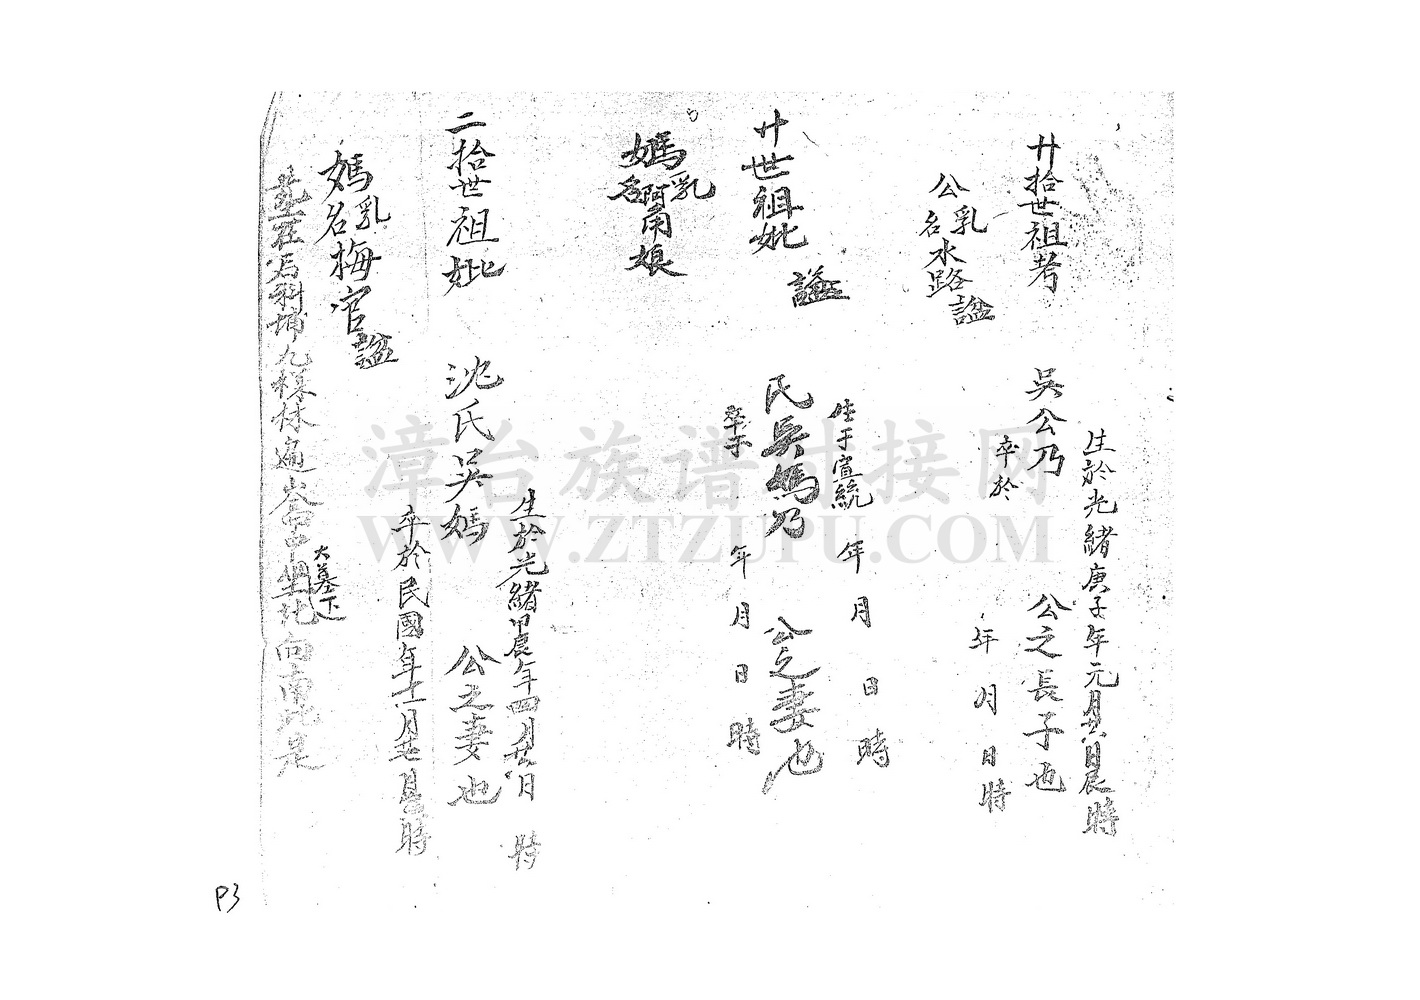 生於光緒庚子年元月廿六日辰時
廿拾世祖考 吳公乃 公之長子也
卒於 年 月 日 時
公乳名水路諡
生于宣統 年 月 日 時
廿世祖妣 諡 氏吳媽乃 公之妻也
卒于 年 月 日 時
媽乳名阿甭娘
生於光緒甲辰年四月廿六日 時
二拾世祖妣 沈氏吳媽 公之妻也
卒於民國年十一月廿七日 時
媽乳名梅官諡
大墓下
埔九樣林 坐北向南 是
漳台族谱对接网
WWW.ZTZUPU.COM
P3